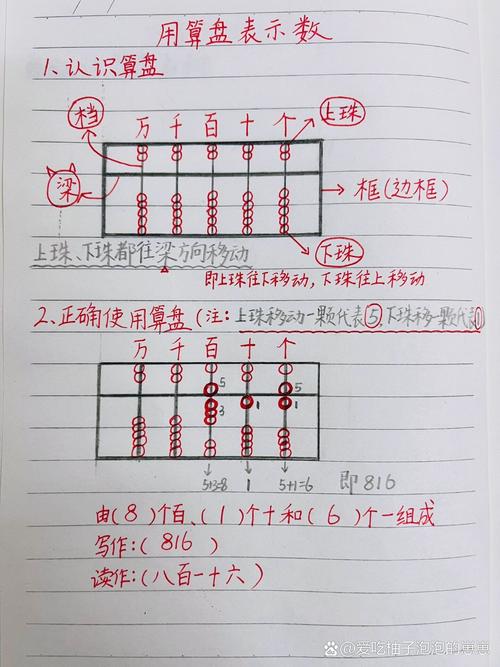 用算盘表示数
1、认识算盘
档 万 千 百 十 个 上珠
梁 框(边框)
上珠、下珠都往梁方向移动 下珠
即上珠往下移动,下珠往上移动
2、正确使用算盘(注:上珠移动一颗代表⑤,下珠移一颗代表①
万 千 百 十 个
5 5
3 1 1
5+3=8 1 5+1=6 即816
由(8)个百、(1)个十和(6)个一组成
写作:(816)
读作:(八百一十六)
@爱吃柚子泡泡的崽崽